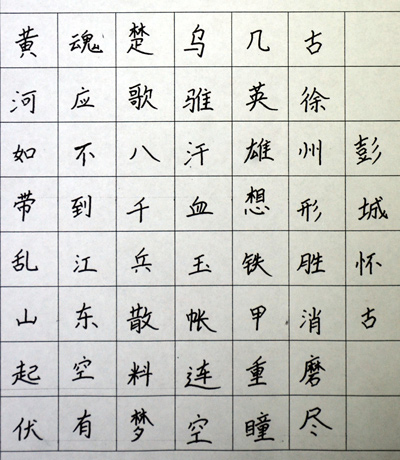 彭城怀古
古徐州形胜消磨尽
几英雄想铁甲重瞳
乌骓汗血玉帐连空
楚歌八千兵散料梦
魂应不到江东空有
黄河如带乱山起伏